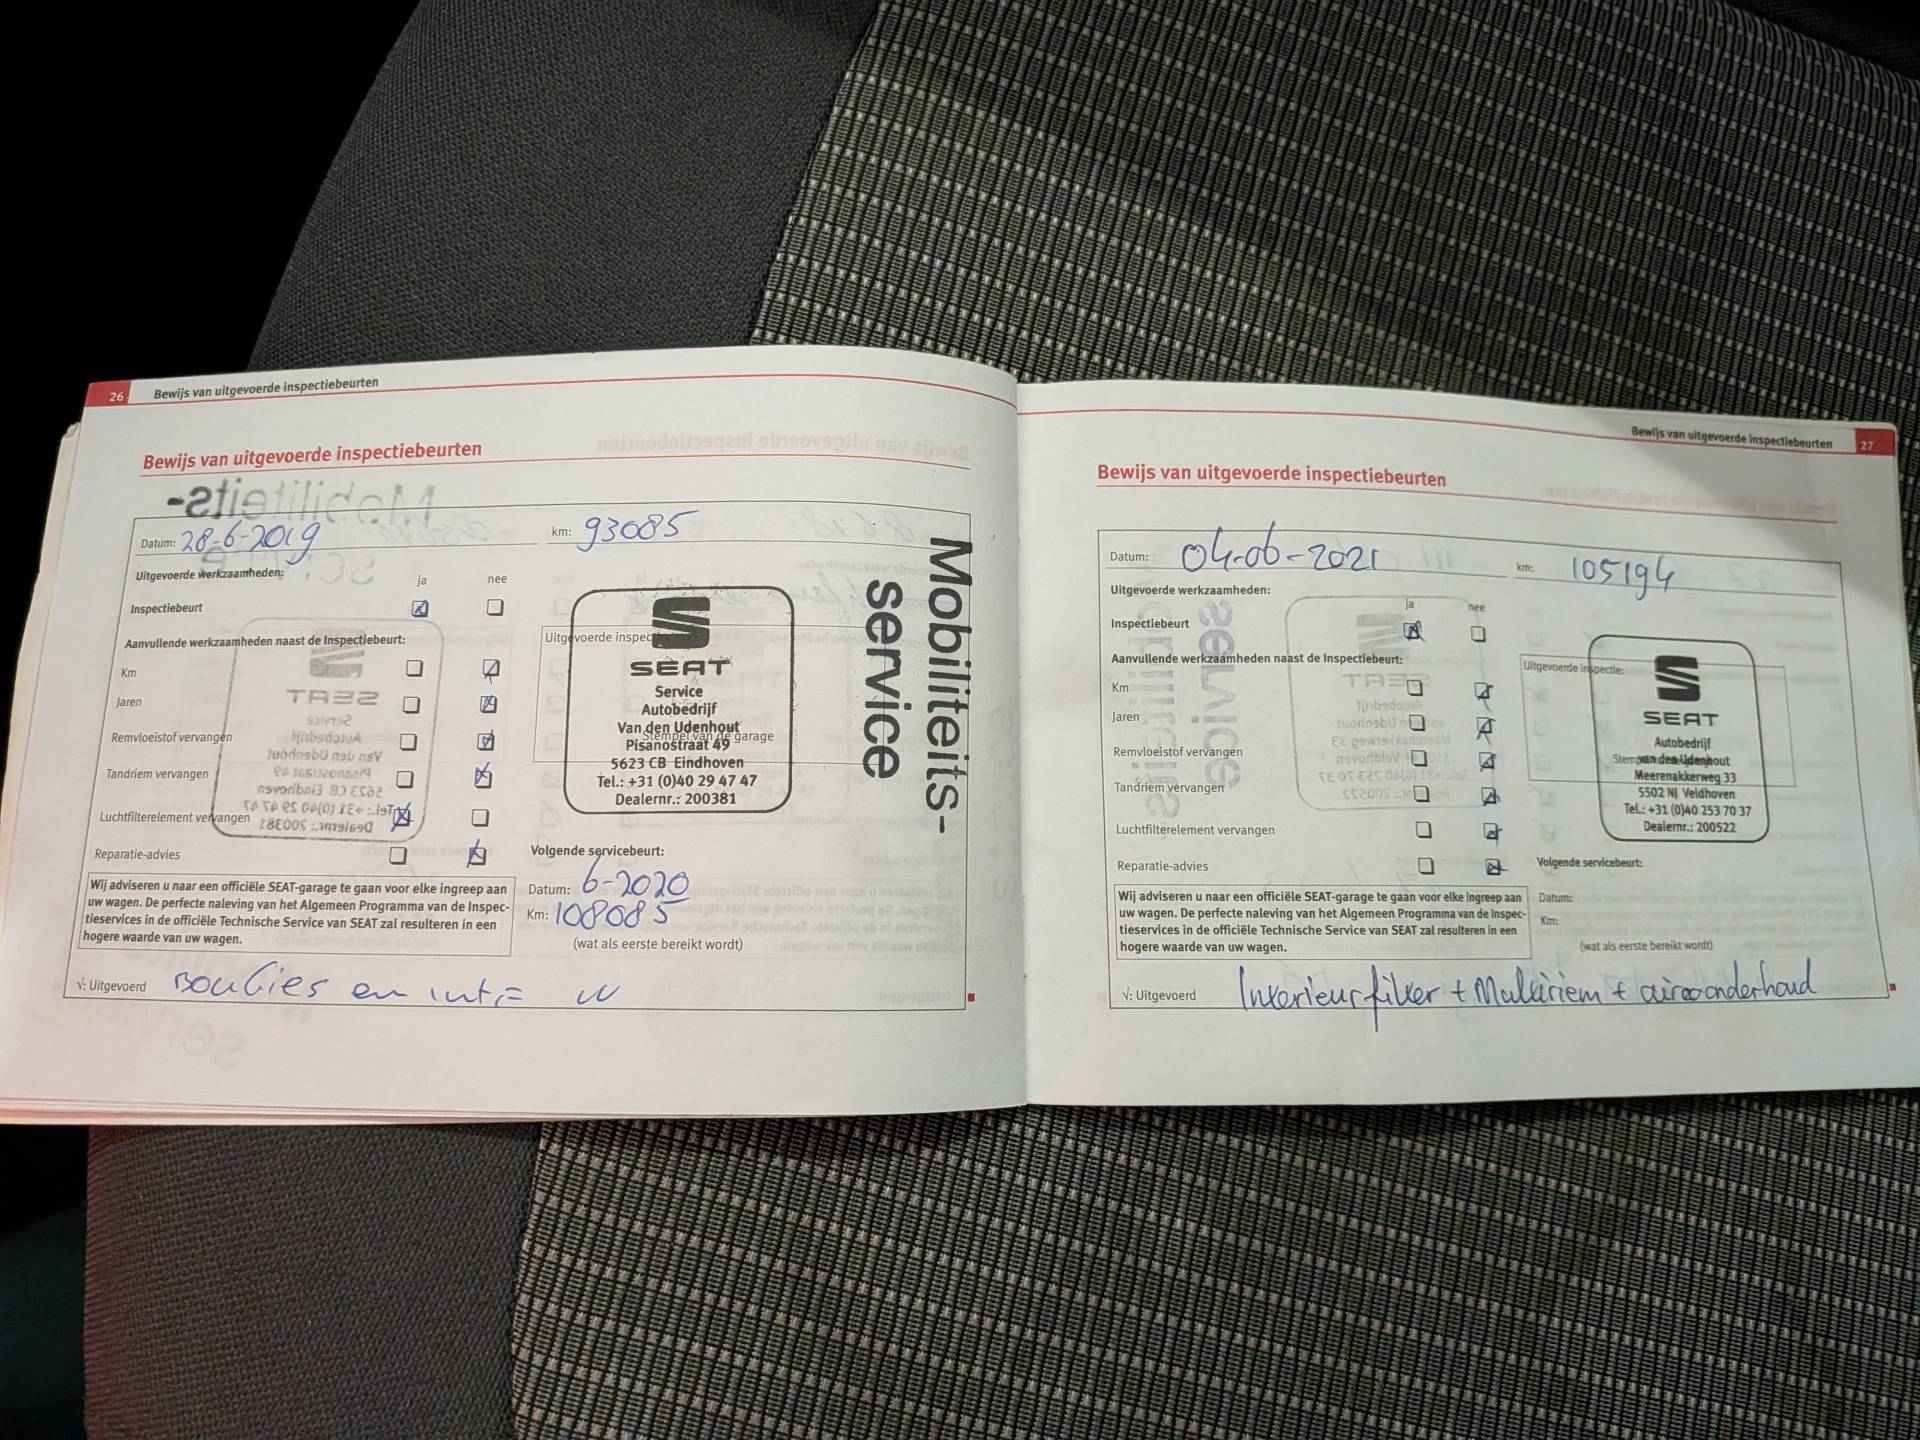 26 Bewijs van uitgevoerde inspectiebeurten
Bewijs van uitgevoerde inspectiebeurten
Datum: 28-6-2019 km: 93085
Uitgevoerde werkzaamheden:
ja nee
Inspectiebeurt
Aanvullende werkzaamheden naast de Inspectiebeurt:
Km
Jaren
Remvloeistof vervangen
Tandriem vervangen
Luchtfilterelement vervangen
Reparatie-advies
Wij adviseren u naar een officiële SEAT-garage te gaan voor elke ingreep aan
uw wagen. De perfecte naleving van het Algemeen Programma van de Inspec-
tieservices in de officiële Technische Service van SEAT zal resulteren in een
hogere waarde van uw wagen.
Uitgevoerde
SEAT
Service
Autobedrijf
Van den Udenhout
Stempel van de garage
Pisanostraat 49
5623 CB Eindhoven
Tel.: +31 (0)40 29 47 47
Dealernr.: 200381
Mobiliteits-
service
Volgende servicebeurt:
Datum: 6-2020
Km: 108085
(wat als eerste bereikt wordt)
√: Uitgevoerd Bougies en int.
Bewijs van uitgevoerde inspectiebeurten 27
Bewijs van uitgevoerde inspectiebeurten
Datum: 04-06-2021 km: 105194
Uitgevoerde werkzaamheden:
ja nee
Inspectiebeurt
Aanvullende werkzaamheden naast de Inspectiebeurt:
Km
Jaren
Remvloeistof vervangen
Tandriem vervangen
Luchtfilterelement vervangen
Reparatie-advies
Wij adviseren u naar een officiële SEAT-garage te gaan voor elke ingreep aan
uw wagen. De perfecte naleving van het Algemeen Programma van de Inspec-
tieservices in de officiële Technische Service van SEAT zal resulteren in een
hogere waarde van uw wagen.
Uitgevoerde inspectie:
SEAT
Autobedrijf
van den Udenhout
Meerenakkerweg 33
5502 NJ Veldhoven
Tel.: +31 (0)40 253 70 37
Dealernr.: 200522
Volgende servicebeurt:
Datum:
Km:
(wat als eerste bereikt wordt)
√: Uitgevoerd Interieurfilter + Multiriem + aircoonderhoud